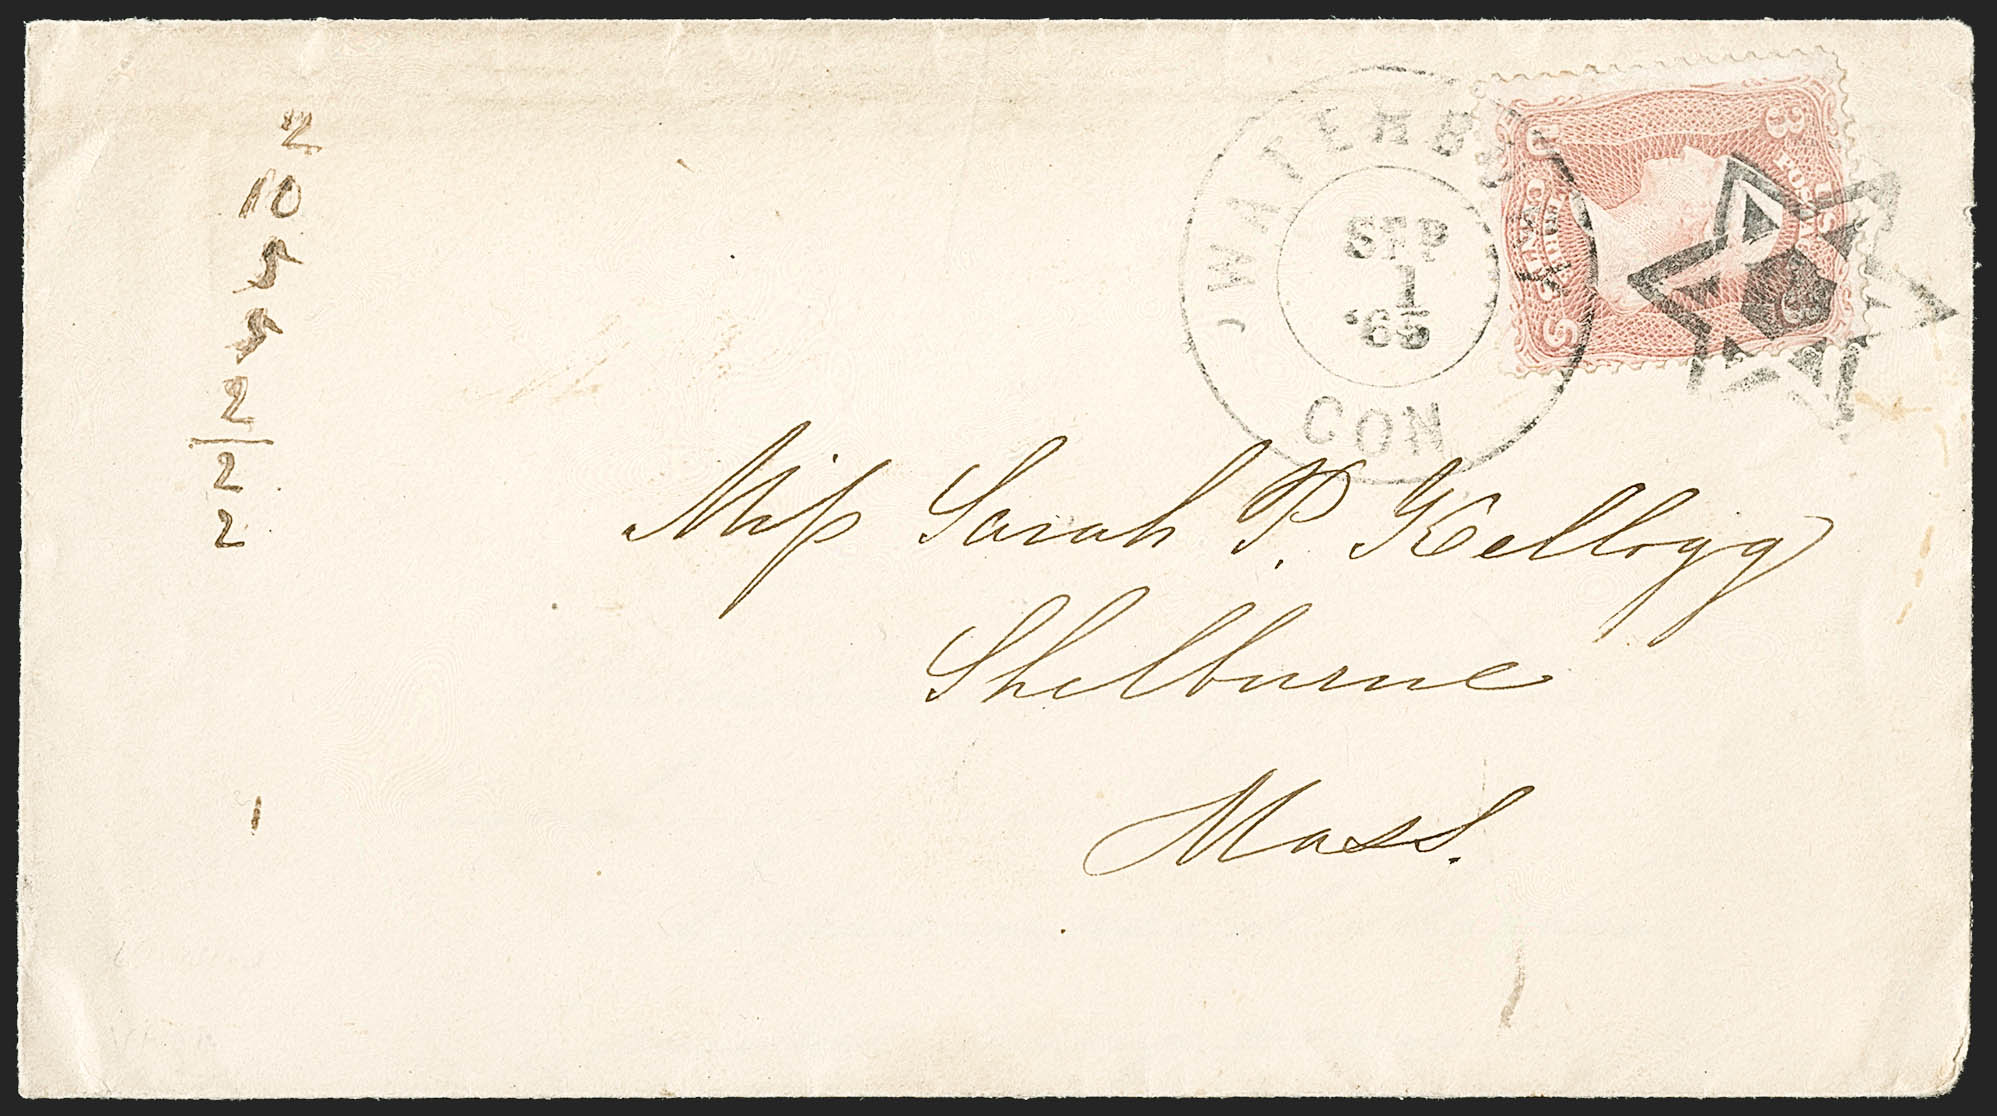 2
10
5
5
2
2
2
1
WATERBURY
SEP
1
'65
CON
3 U.S. POSTAGE 3
THREE CENTS
Miss Sarah P. Kellogg
Shelburne
Mass.